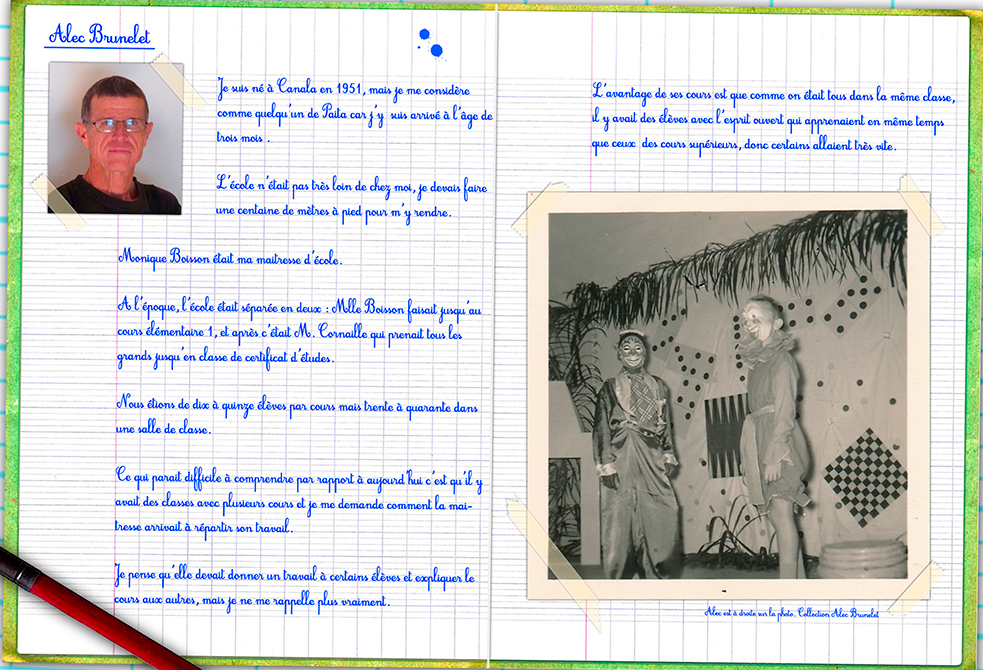 Alec Brunelet
Je suis né à Canala en 1951, mais je me considère
comme quelqu'un de Paita car j'y suis arrivé à l'âge de
trois mois .
L'école n'était pas très loin de chez moi, je devais faire
une centaine de mètres à pied pour m'y rendre.
Monique Boisson était ma maitresse d'école.
A l'époque, l'école était séparée en deux : Mlle Boisson faisait jusqu'au
cours élémentaire 1, et après c'était M. Cornaille qui prenait tous les
grands jusqu'en classe de certificat d'études.
Nous étions de dix à quinze élèves par cours mais trente à quarante dans
une salle de classe.
Ce qui parait difficile à comprendre par rapport à aujourd'hui c'est qu'il y
avait des classes avec plusieurs cours et je me demande comment la mai-
tresse arrivait à répartir son travail.
Je pense qu'elle devait donner un travail à certains élèves et expliquer le
cours aux autres, mais je ne me rappelle plus vraiment.
L'avantage de ses cours est que comme on était tous dans la même classe,
il y avait des élèves avec l'esprit ouvert qui apprenaient en même temps
que ceux des cours supérieurs, donc certains allaient très vite.
Alec est à droite sur la photo. Collection Alec Brunelet